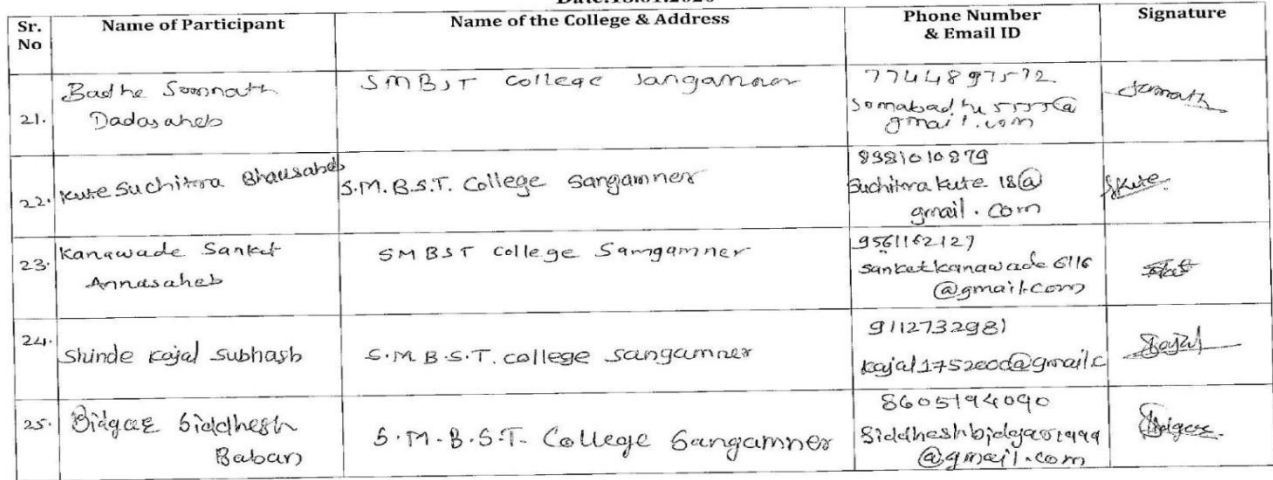 Sr. No
Name of Participant
Name of the College & Address
Phone Number & Email ID
Signature
21.
Badhe Somnath
Dadasaheb
SMBST College Sangamner
7744897572
somabadhe5555@
gmail.com
Somnath
22.
Kute Suchitra Bhausaheb
S.M.B.S.T. College Sangamner
8381010879
Suchitrakute18@
gmail.com
SKute
23.
Kanawade Sanket
Annasaheb
SMBST College Samgamner
9561162127
sanketkanawade6116
@gmail.com
24.
Shinde Kajal Subhash
S.M.B.S.T. college Sangamner
9112732981
kajal1752000@gmail.c
Kajal
25.
Bidgar Siddhesh
Baban
S.M.B.S.T. College Sangamner
8605194090
Siddheshbidgar1999
@gmail.com